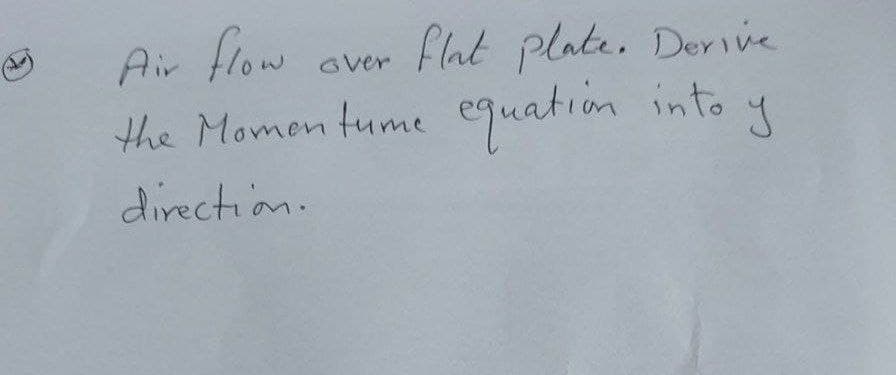 Air flow over flat plate. Derive
the Momentume equation into y
direction.